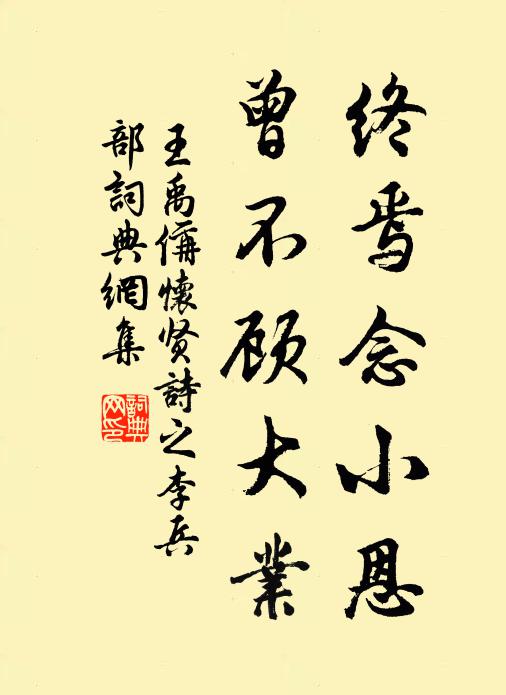 终焉念小恩
曾不顾大業
王禹偁懷贤詩之李兵
部詞典網集
詞典
网印